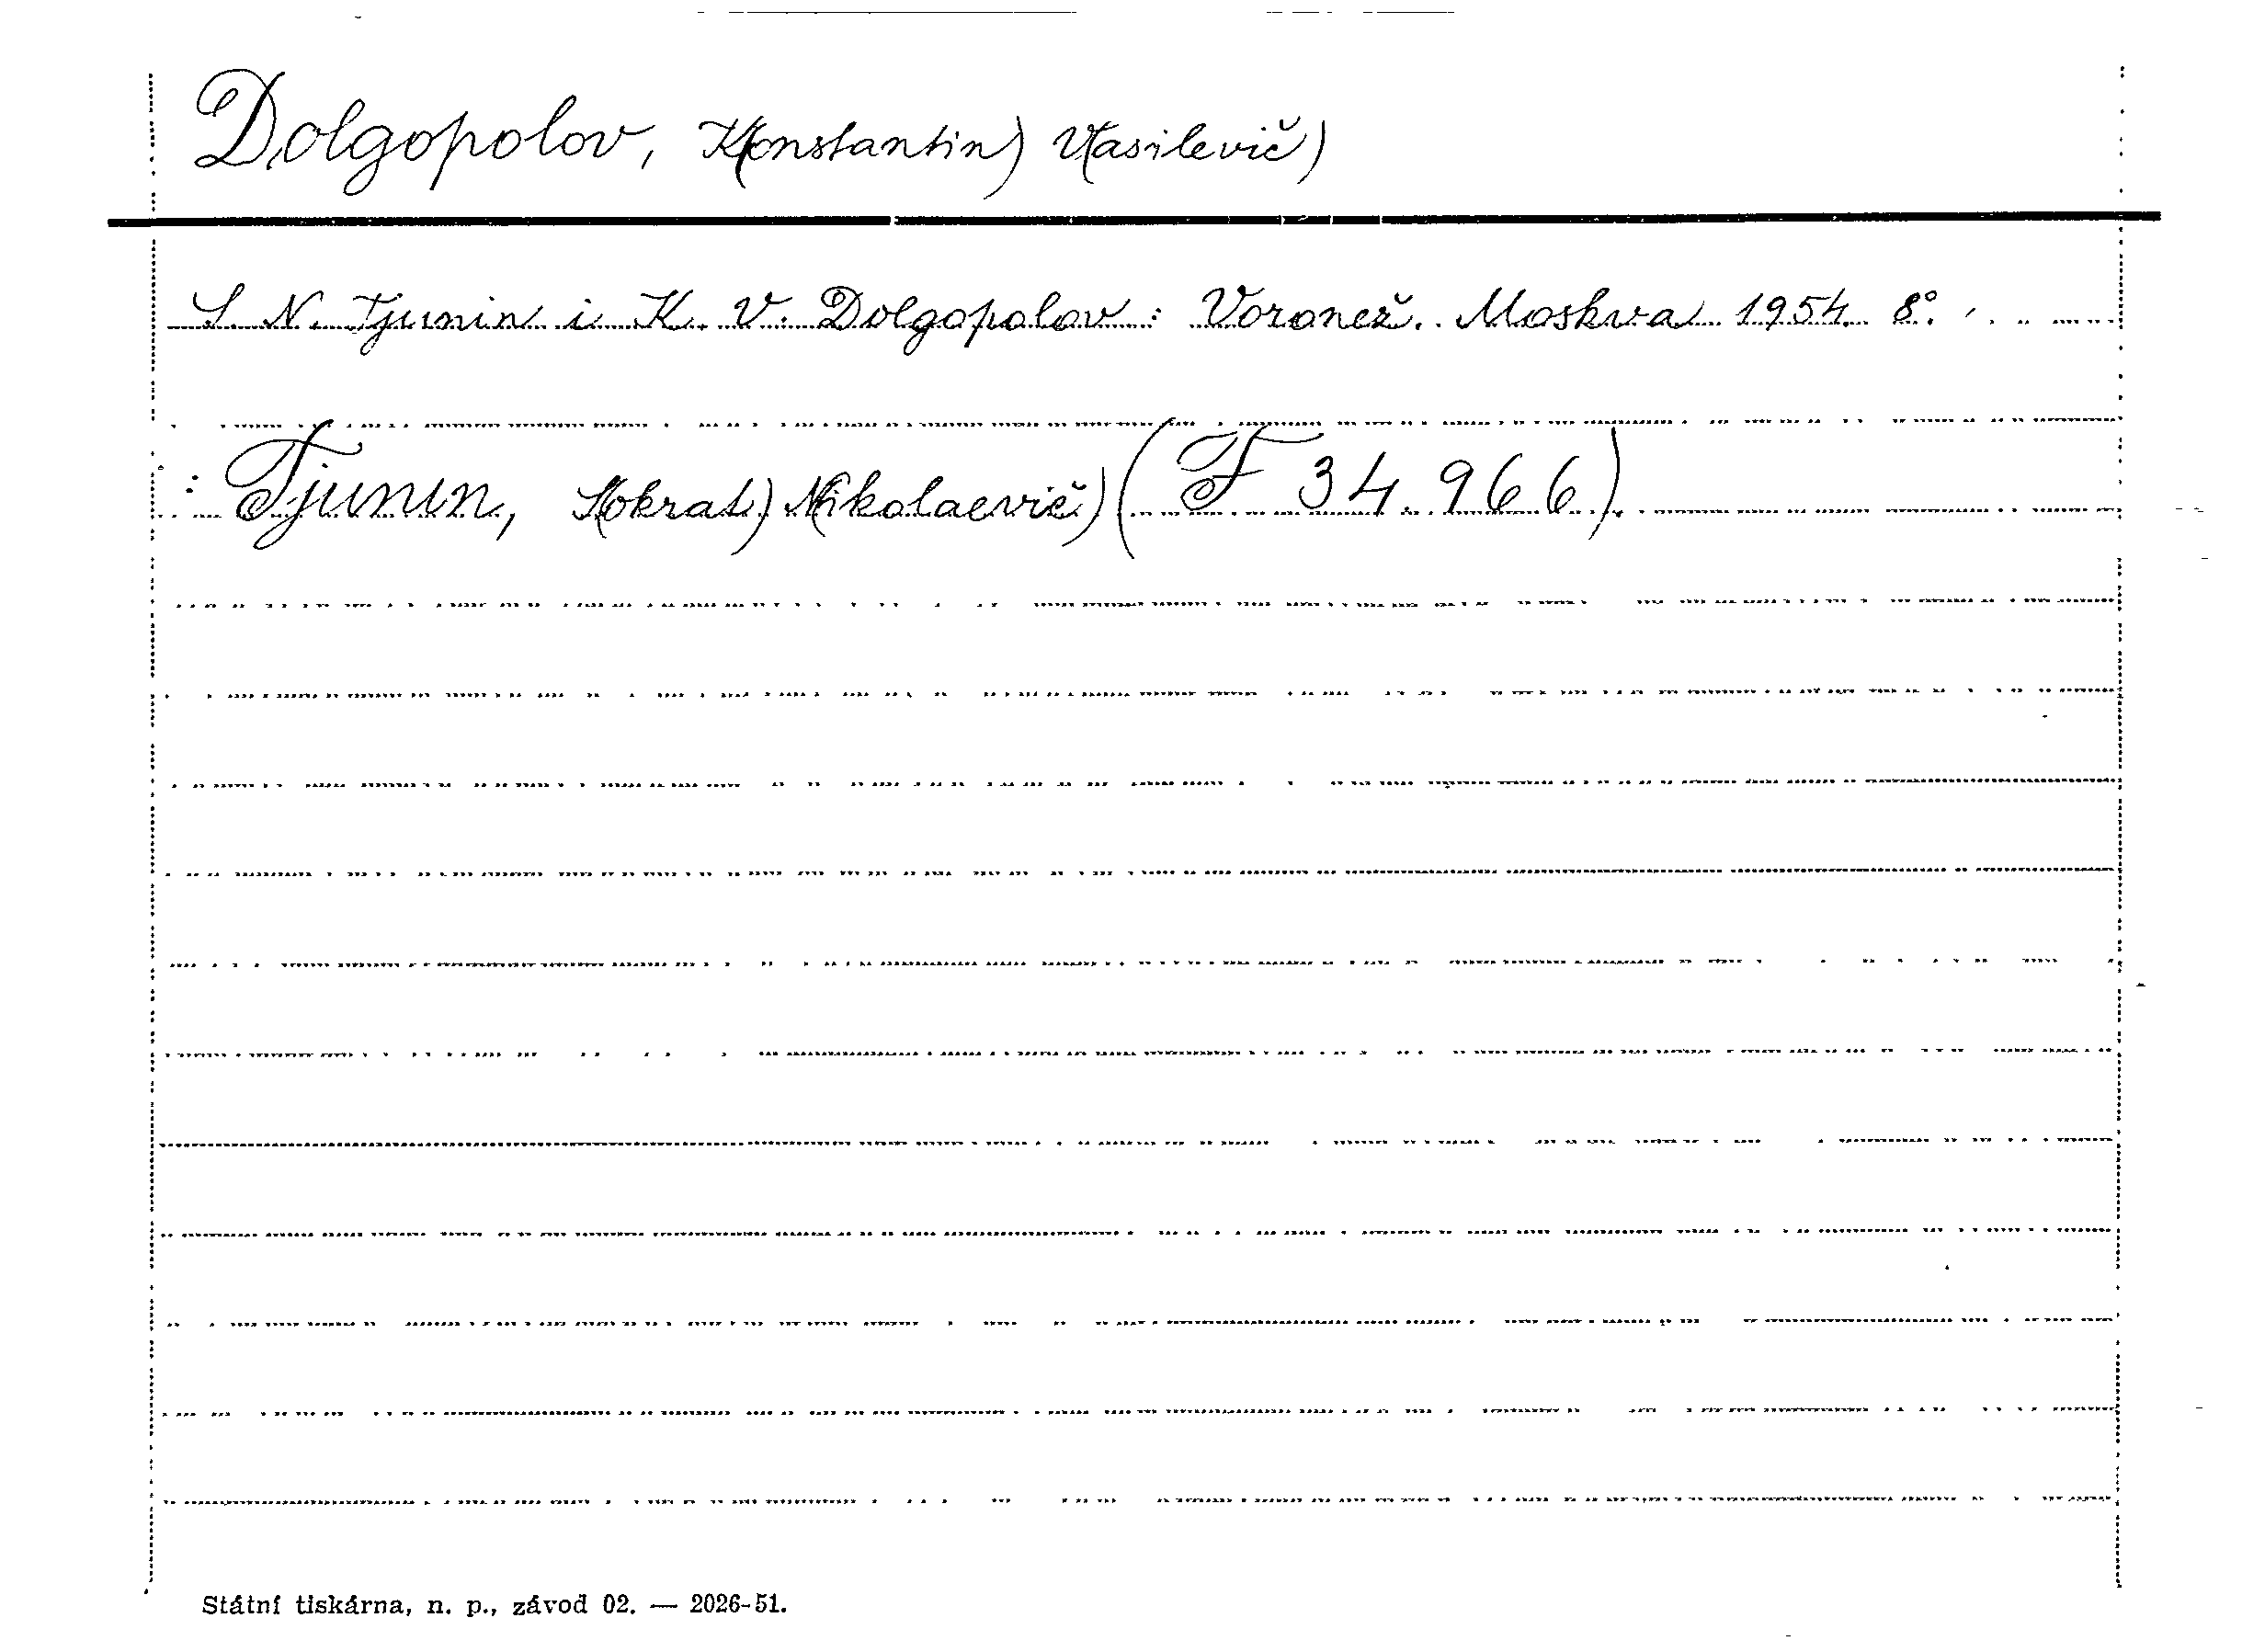 Dolgopolov, K(onstantin) V(asilevič)
S. N. Tjunin i K. V. Dolgopolov: Voronež. Moskva 1954. 8°.
: Tjunin, S(okrat) N(ikolaevič) (F 34.966).
Státní tiskárna, n. p., závod 02. — 2026-51.